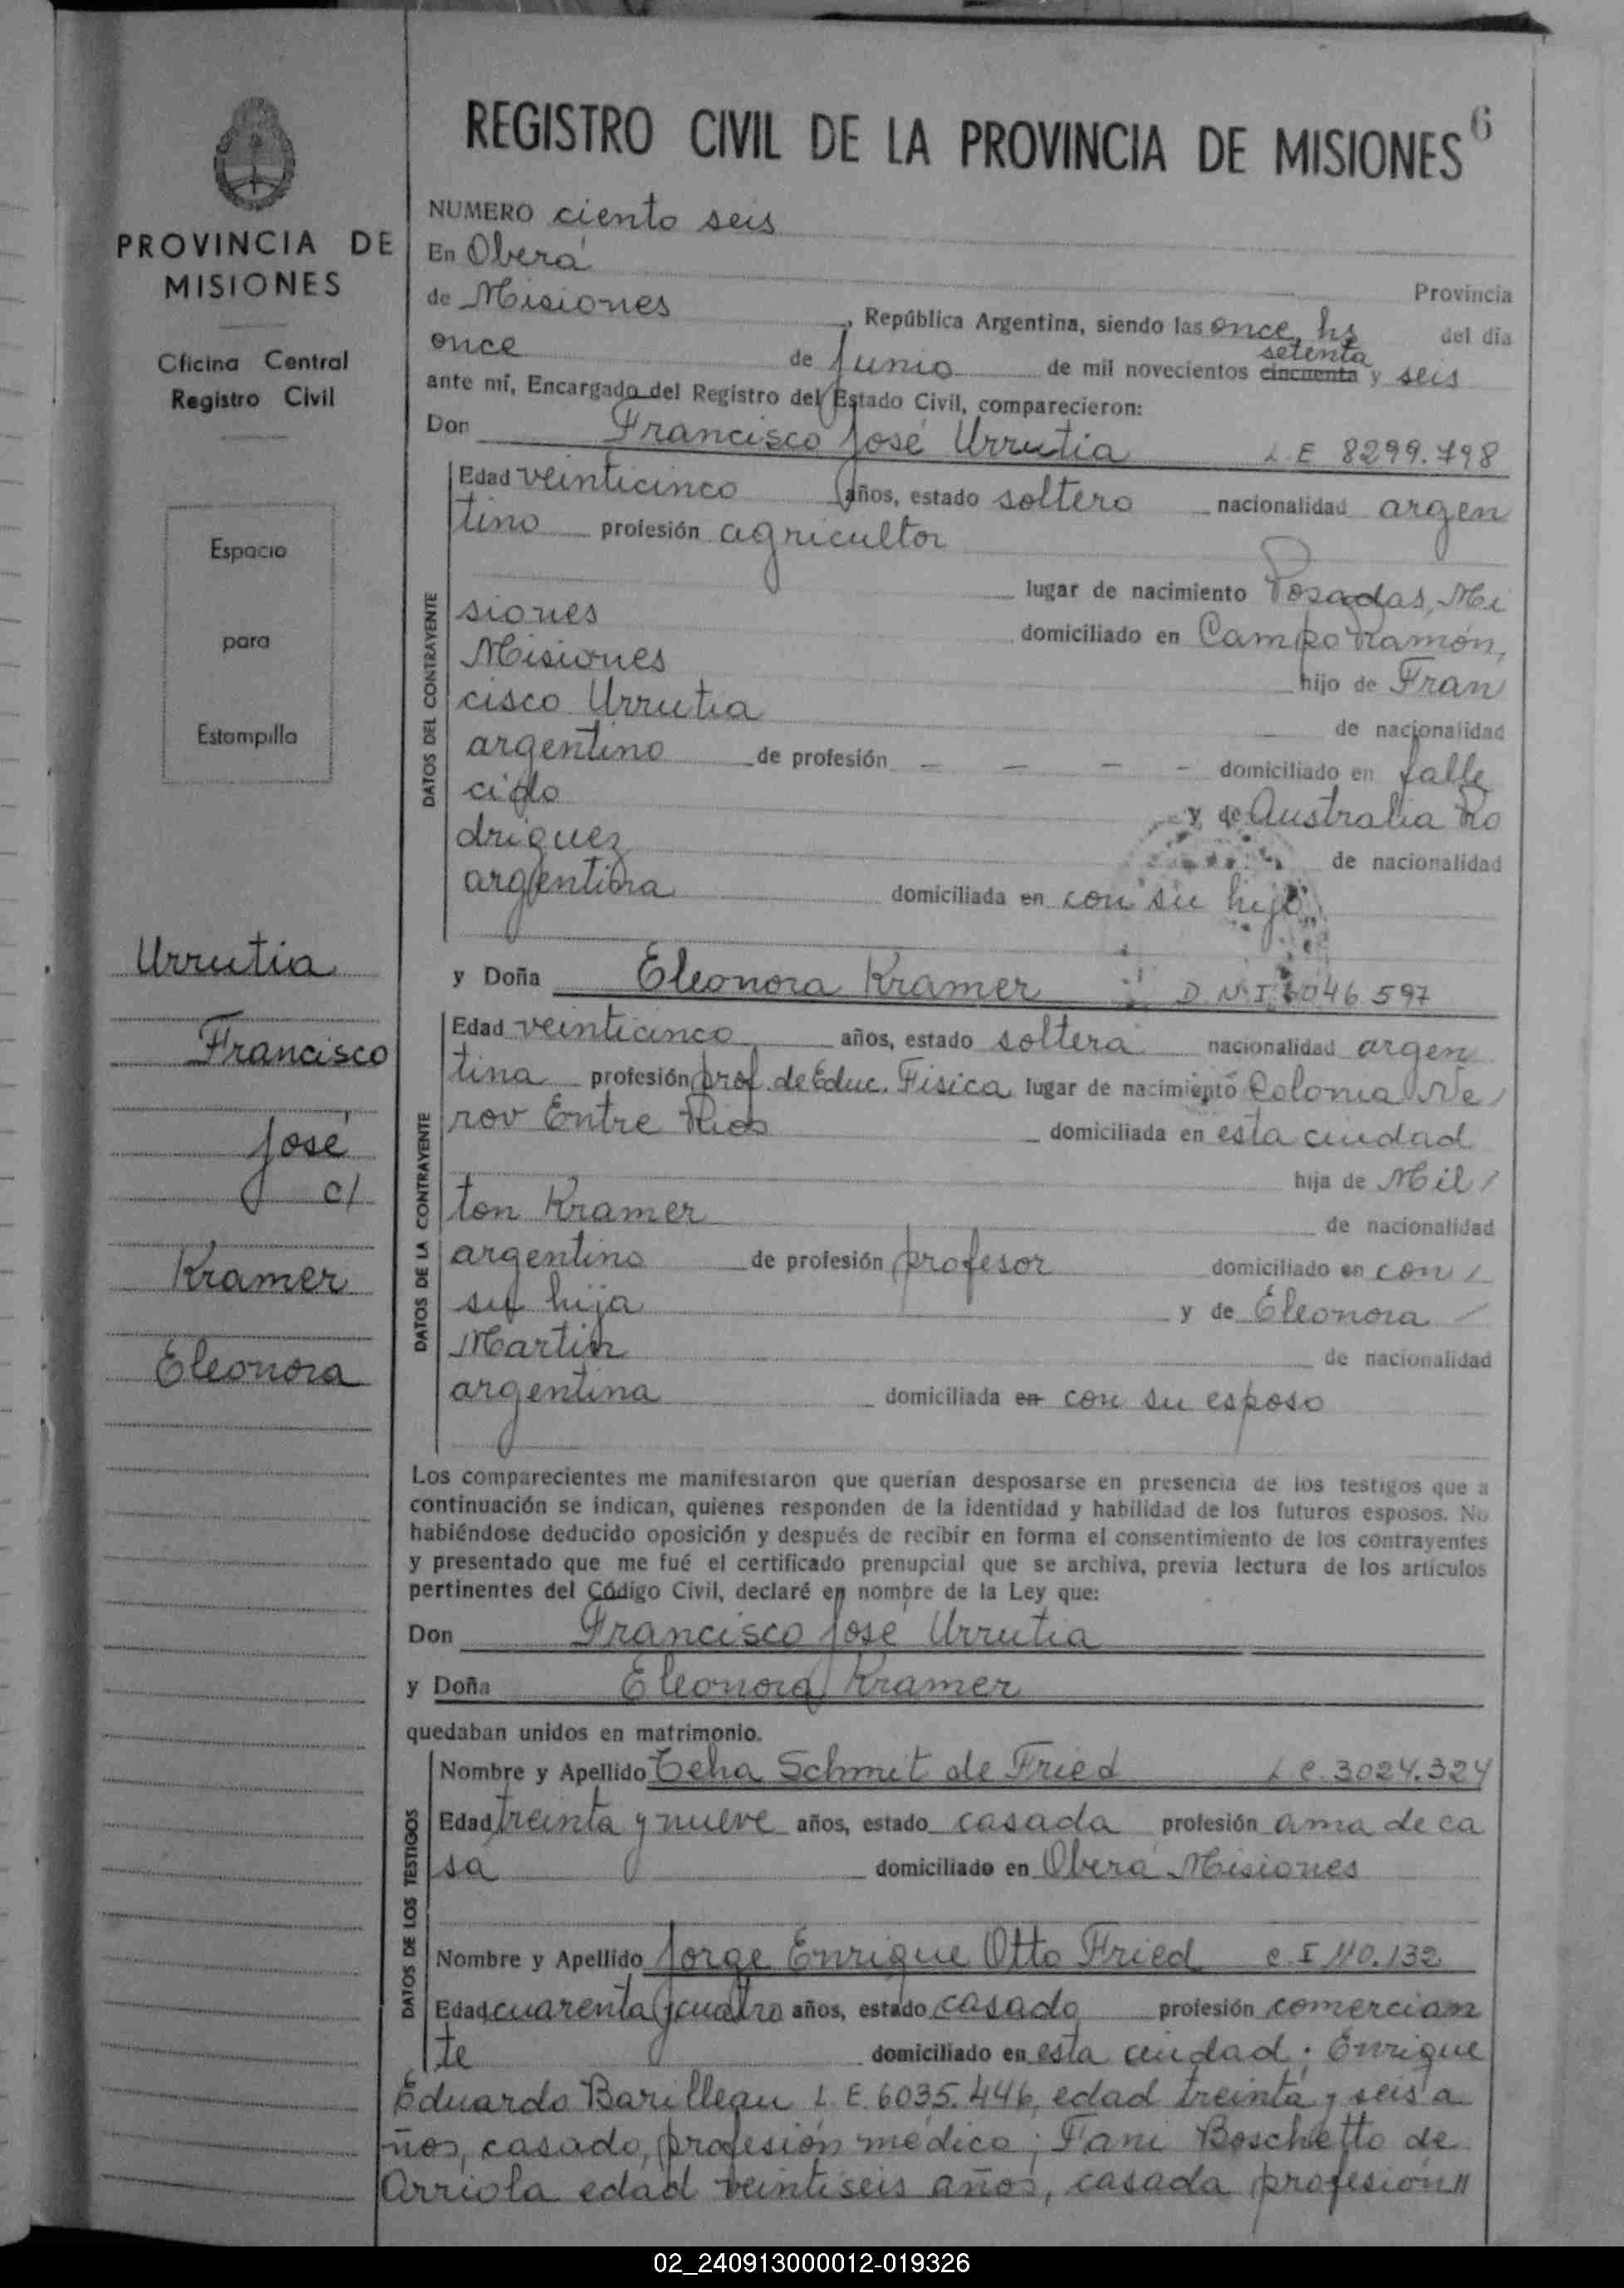 6
REGISTRO CIVIL DE LA PROVINCIA DE MISIONES
PROVINCIA DE
MISIONES
Oficina Central
Registro Civil
Espacio
para
Estampilla
Urrutia
Francisco
José
c/
Kramer
Eleonora
NUMERO ciento seis
En Oberá Provincia
de Misiones, República Argentina, siendo las once hs del día
once de Junio de mil novecientos cincuenta setenta y seis
ante mí, Encargado del Registro del Estado Civil, comparecieron:
Don Francisco José Urrutia L.E 8299.798
DATOS DEL CONTRAYENTE
Edad veinticinco años, estado soltero nacionalidad argen
tino profesión agricultor
lugar de nacimiento Posadas, Mi
siones domiciliado en Campo Ramón,
Misiones hijo de Fran
cisco Urrutia de nacionalidad
argentino de profesión - - - - domiciliado en falle
cido y de Australia Ro
driguez de nacionalidad
argentina domiciliada en con su hijo
y Doña Eleonora Kramer D.N.I 6046.597
DATOS DE LA CONTRAYENTE
Edad veinticinco años, estado soltera nacionalidad argen
tina profesión prof. de Educ. Fisica lugar de nacimiento Colonia Ne/
rov Entre Rios domiciliada en esta ciudad
hija de Mil/
ton Kramer de nacionalidad
argentino de profesión profesor domiciliado en con /
su hija y de Eleonora /
Martin de nacionalidad
argentina domiciliada en con su esposo
Los comparecientes me manifestaron que querían desposarse en presencia de los testigos que a
continuación se indican, quienes responden de la identidad y habilidad de los futuros esposos. No
habiéndose deducido oposición y después de recibir en forma el consentimiento de los contrayentes
y presentado que me fué el certificado prenupcial que se archiva, previa lectura de los artículos
pertinentes del Código Civil, declaré en nombre de la Ley que:
Don Francisco José Urrutia
y Doña Eleonora Kramer
quedaban unidos en matrimonio.
DATOS DE LOS TESTIGOS
Nombre y Apellido Schmit de Fried L C. 3024.324
Edad treinta y nueve años, estado casada profesión ama de ca
sa domiciliado en Oberá Misiones
Nombre y Apellido Jorge Enrique Otto Fried C. I 110.132
Edad cuarenta y cuatro años, estado casado profesión comercian
te domiciliado en esta ciudad; Enrique
Eduardo Barilleau L.E. 6035.446, edad treinta y seis a
ños, casado, profesión médico; Fani Boschetto de
Arriola edad veintiseis años, casada profesión //
02_240913000012-019326